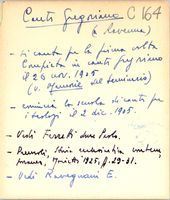 Canto Gregoriano C 164
(a Ravenna)
- si cantò per la prima volta
Compieta in canto gregoriano
il 26 nov. 1905
(v. Memorie del Seminario)
- comincia la scuola di canto per
i teologi il 2 dic. 1905.
- Vedi Ferretti don Paolo.
- Premoli, Storia ecclesiastica contemporanea, Marietti 1925, p. 29-31.
- Vedi Ravegnani E.